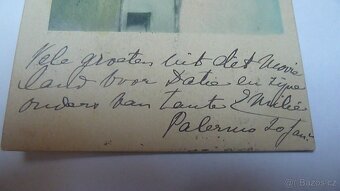 Vele groeten uit dit mooie
land voor Datie en zijne
ouders van tante Emilie
Palermo 20 Jan.
Bazoš.cz